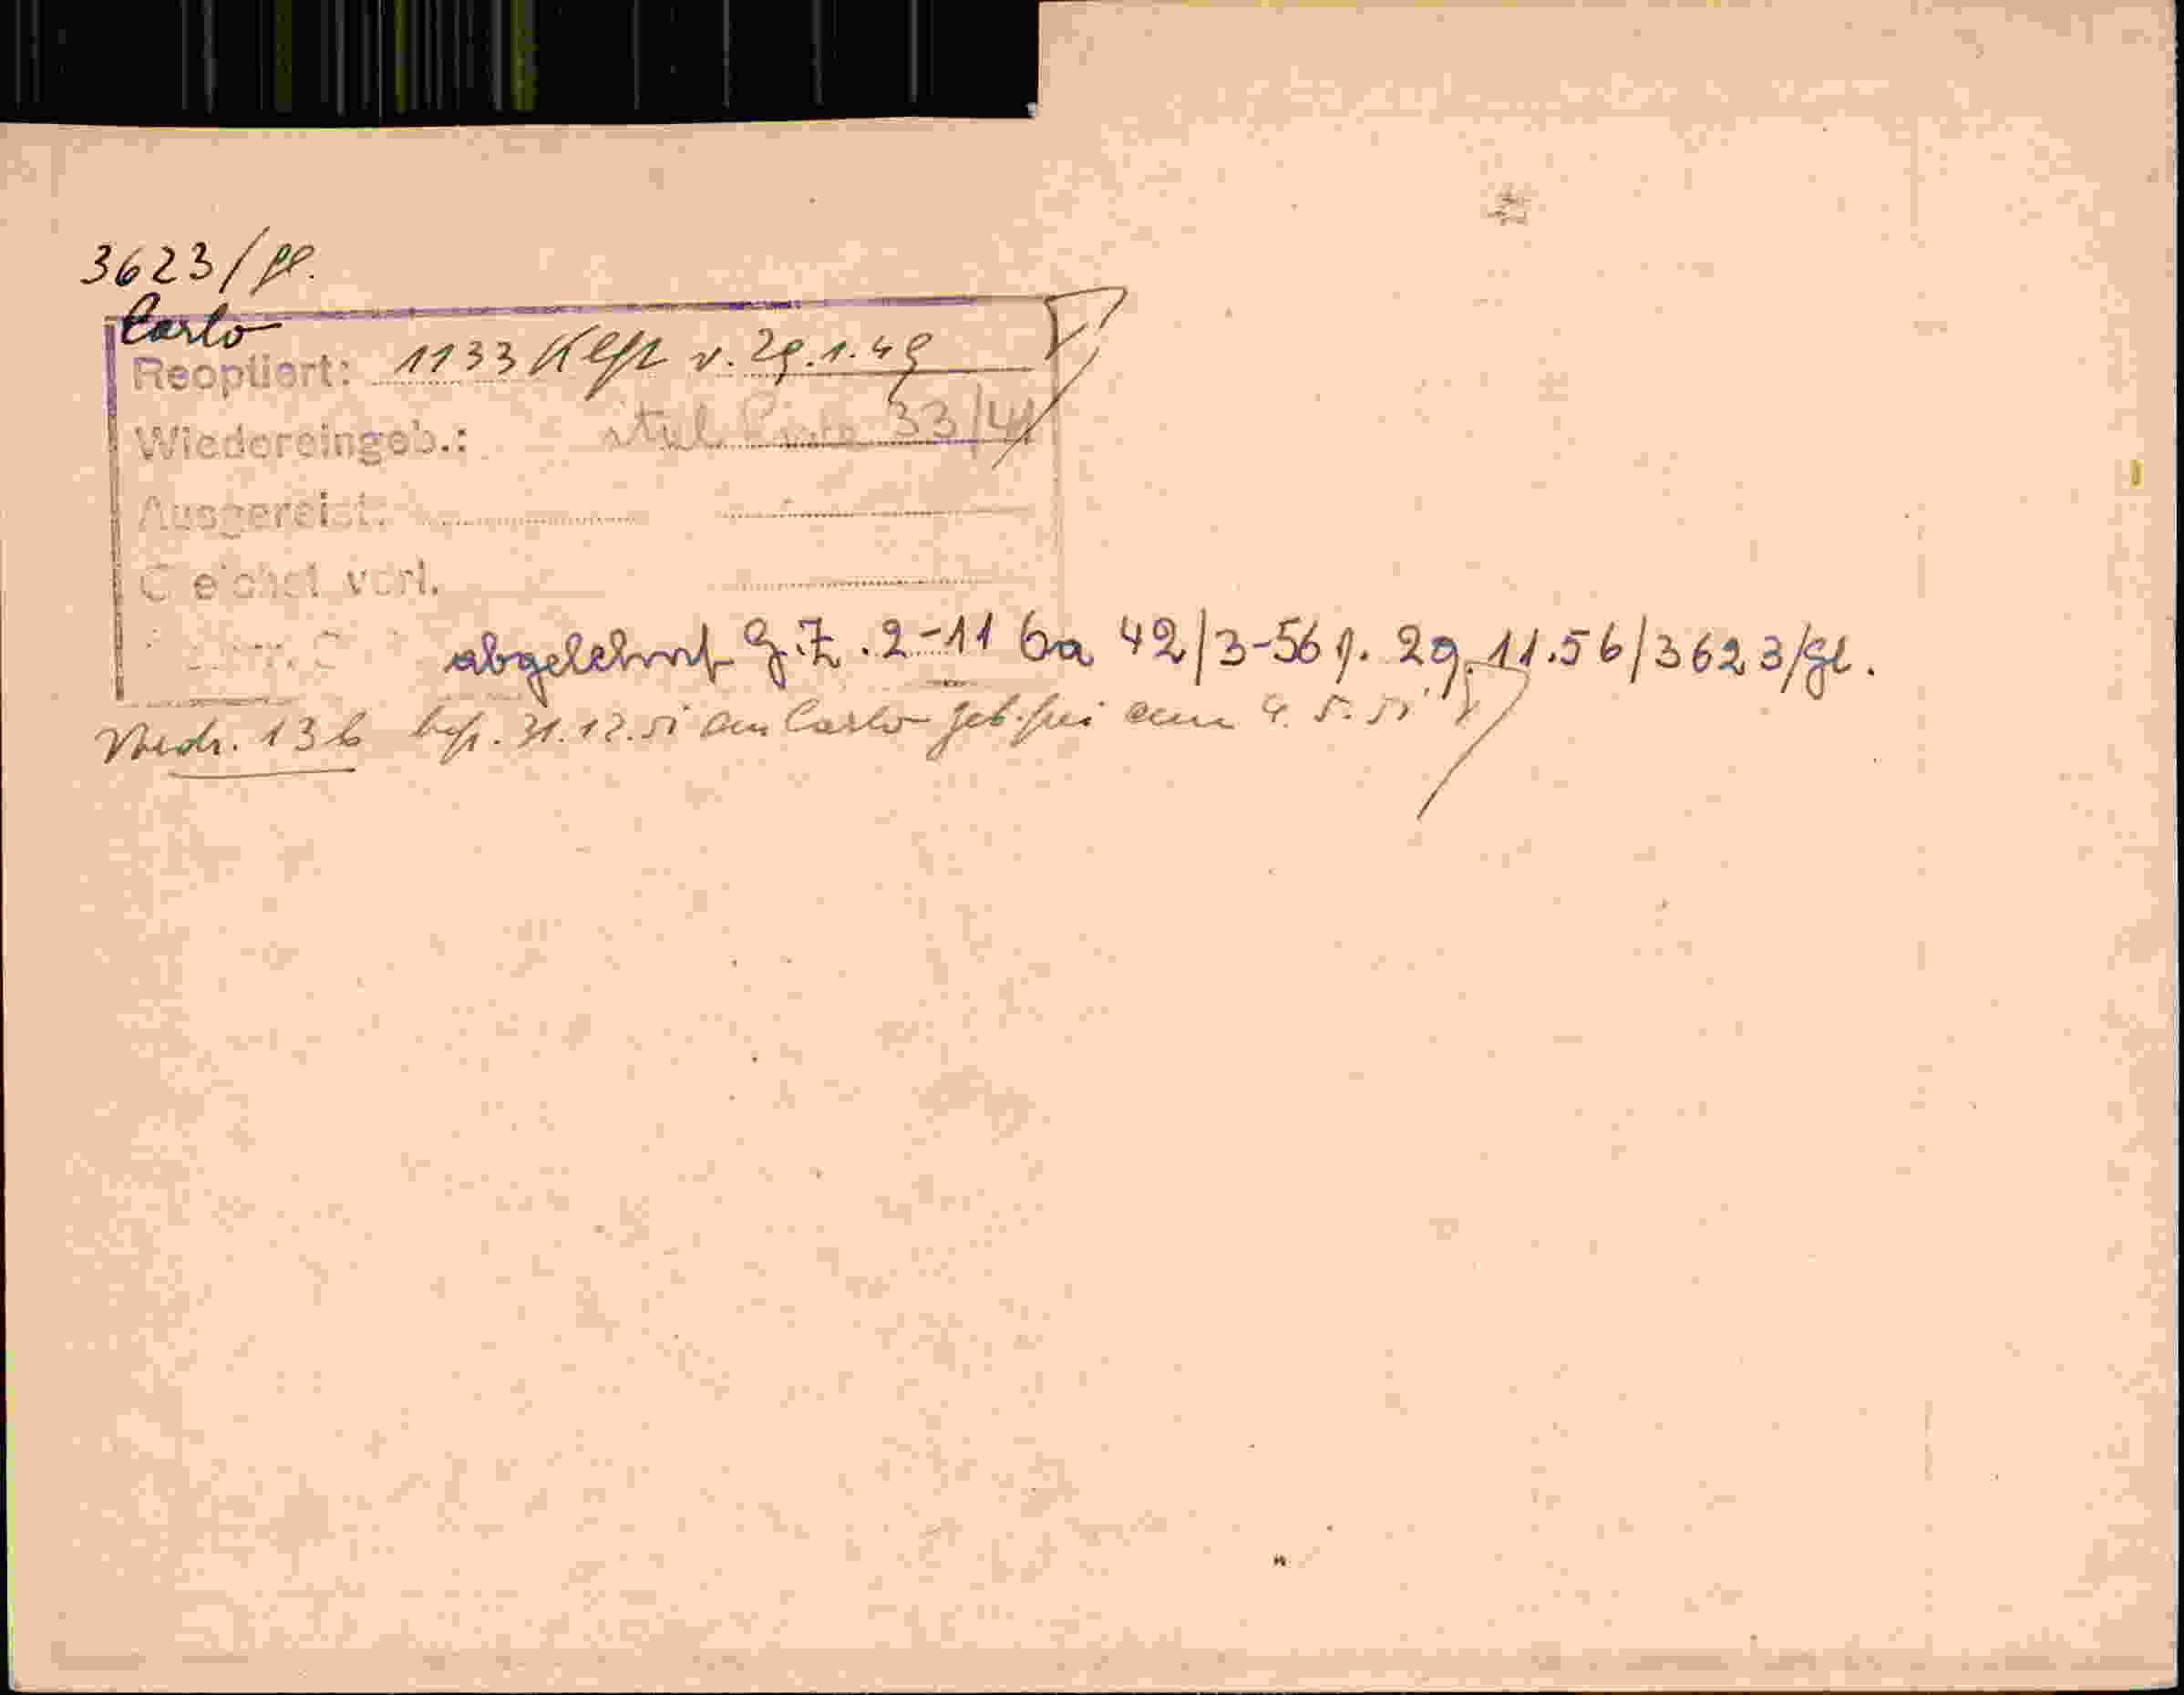 3623/gl.
Carlo
Reoptiert: 1133 v. 29.1.49
Wiedereingeb.: ital 33/41
Ausgereist:
Gleichst. verl.
abgelehnt G.Z. 2-11 6a 42/3-56 v. 29.11.56/3623/gl.
13b 31.12.51 an Carlo geb. frei am 4. 5. 51